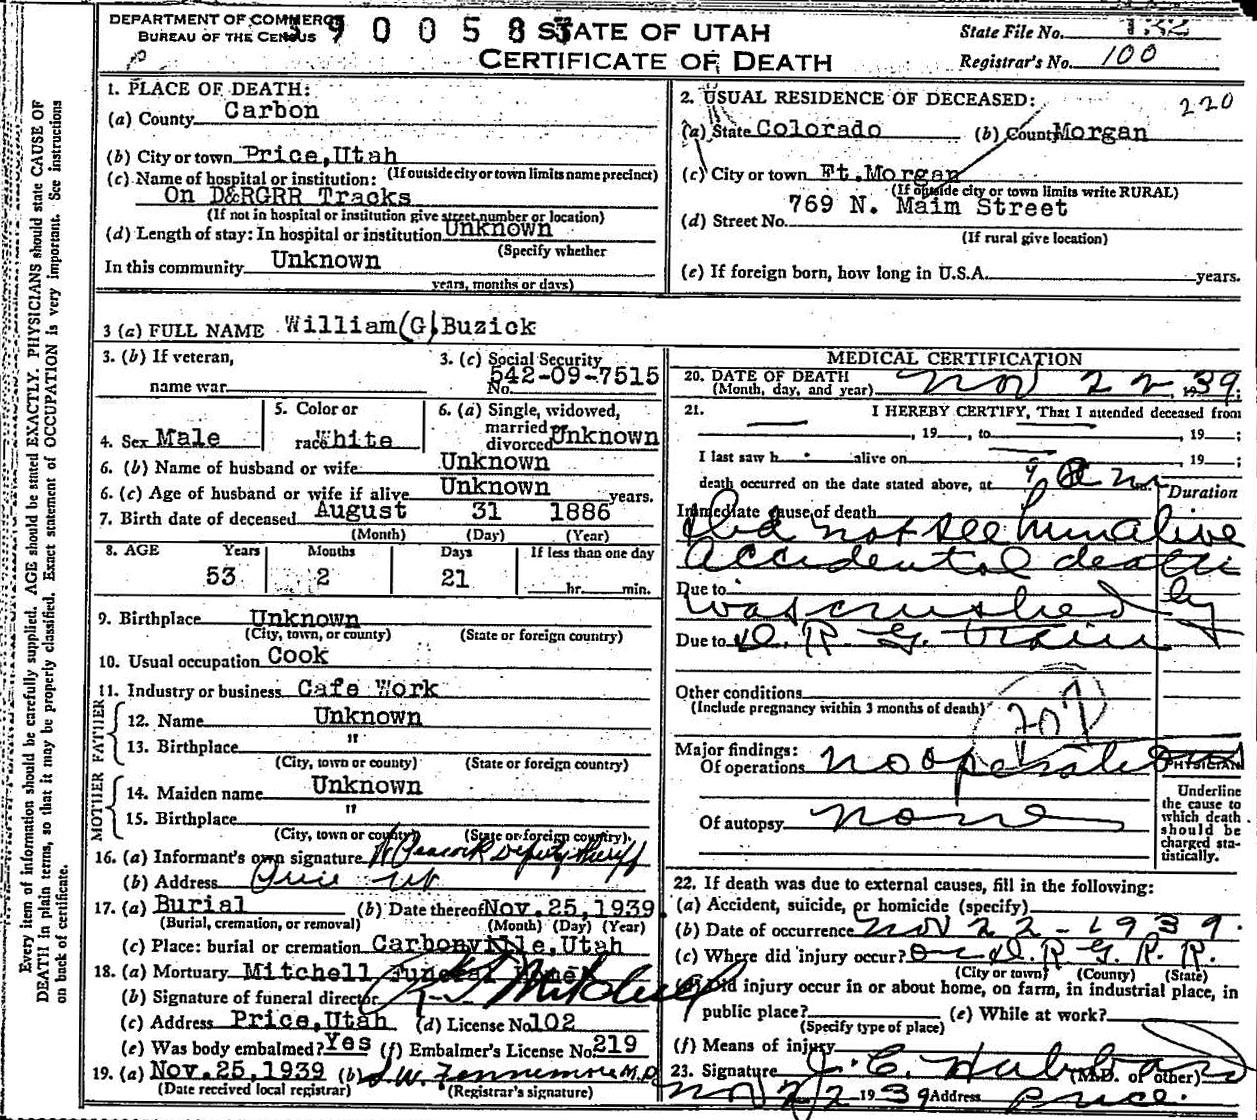 DEPARTMENT OF COMMERCE
BUREAU OF THE CENSUS
9 0 0 5 8 3
STATE OF UTAH
CERTIFICATE OF DEATH
State File No.
Registrar's No. 100
Every item of information should be carefully supplied. AGE should be stated EXACTLY. PHYSICIANS should state CAUSE OF
DEATH in plain terms, so that it may be properly classified. Exact statement of OCCUPATION is very important. See instructions
on back of certificate.
1. PLACE OF DEATH:
(a) County Carbon
(b) City or town Price,Utah
(If outside city or town limits name precinct)
(c) Name of hospital or institution:
On D&RGRR Tracks
(If not in hospital or institution give street number or location)
(d) Length of stay: In hospital or institution Unknown
(Specify whether
In this community Unknown
years, months or days)
2. USUAL RESIDENCE OF DECEASED: 220
(a) State Colorado (b) County Morgan
(c) City or town Ft.Morgan
(If outside city or town limits write RURAL)
(d) Street No. 769 N. Maim Street
(If rural give location)
(e) If foreign born, how long in U.S.A. years.
3 (a) FULL NAME William (G) Buzick
3. (b) If veteran,
name war
3. (c) Social Security
No. 542-09-7515
4. Sex Male
5. Color or
race White
6. (a) Single, widowed,
married or
divorced Unknown
6. (b) Name of husband or wife Unknown
6. (c) Age of husband or wife if alive Unknown years.
7. Birth date of deceased August 31 1886
(Month) (Day) (Year)
8. AGE Years Months Days If less than one day
53 2 21 hr. min.
9. Birthplace Unknown
(City, town, or county) (State or foreign country)
10. Usual occupation Cook
11. Industry or business Cafe Work
FATHER
12. Name Unknown
13. Birthplace "
(City, town or county) (State or foreign country)
MOTHER
14. Maiden name Unknown
15. Birthplace "
(City, town or county) (State or foreign country)
16. (a) Informant's own signature Peacock Deputy Sheriff
(b) Address Price Ut
17. (a) Burial (b) Date thereof Nov.25,1939
(Burial, cremation, or removal) (Month) (Day) (Year)
(c) Place: burial or cremation Carbonville,Utah
18. (a) Mortuary Mitchell Funeral Home
(b) Signature of funeral director Mitchell
(c) Address Price,Utah (d) License No. 102
(e) Was body embalmed? Yes (f) Embalmer's License No. 219
19. (a) Nov.25,1939 (b) W. Fennemore M.D.
(Date received local registrar) (Registrar's signature)
MEDICAL CERTIFICATION
20. DATE OF DEATH
(Month, day, and year) Nov 22, 1939;
21. I HEREBY CERTIFY, That I attended deceased from
, 19 , to , 19 ;
I last saw h alive on , 19 ;
death occurred on the date stated above, at 9 a m.
Duration
Immediate cause of death
Did not see him alive
accidental death
Due to was crushed by
Due to D. R. G. train
Other conditions
(Include pregnancy within 3 months of death)
Major findings:
Of operations no operation
Of autopsy none
PHYSICIAN
Underline
the cause to
which death
should be
charged sta-
tistically.
22. If death was due to external causes, fill in the following:
(a) Accident, suicide, or homicide (specify)
(b) Date of occurrence Nov 22 - 1939.
(c) Where did injury occur? on D. R. G. R. R.
(City or town) (County) (State)
Did injury occur in or about home, on farm, in industrial place, in
public place? (e) While at work?
(Specify type of place)
(f) Means of injury
23. Signature J. C. Hubbard
(M.D. or other)
Nov 22 1939 Address Price.